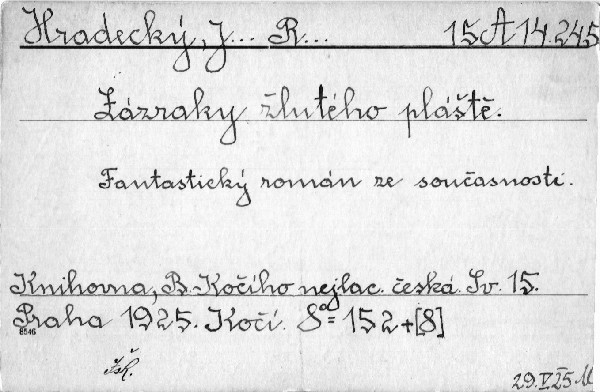 Hradecký, J... R... 15 A 14.245
Zázraky žlutého pláště.
Fantastický román ze současnosti.
Knihovna, B. Kočího nejlac. česká. Sv. 15.
Praha 1925. Kočí. 8° = 152+[8]
8546
29.V.25